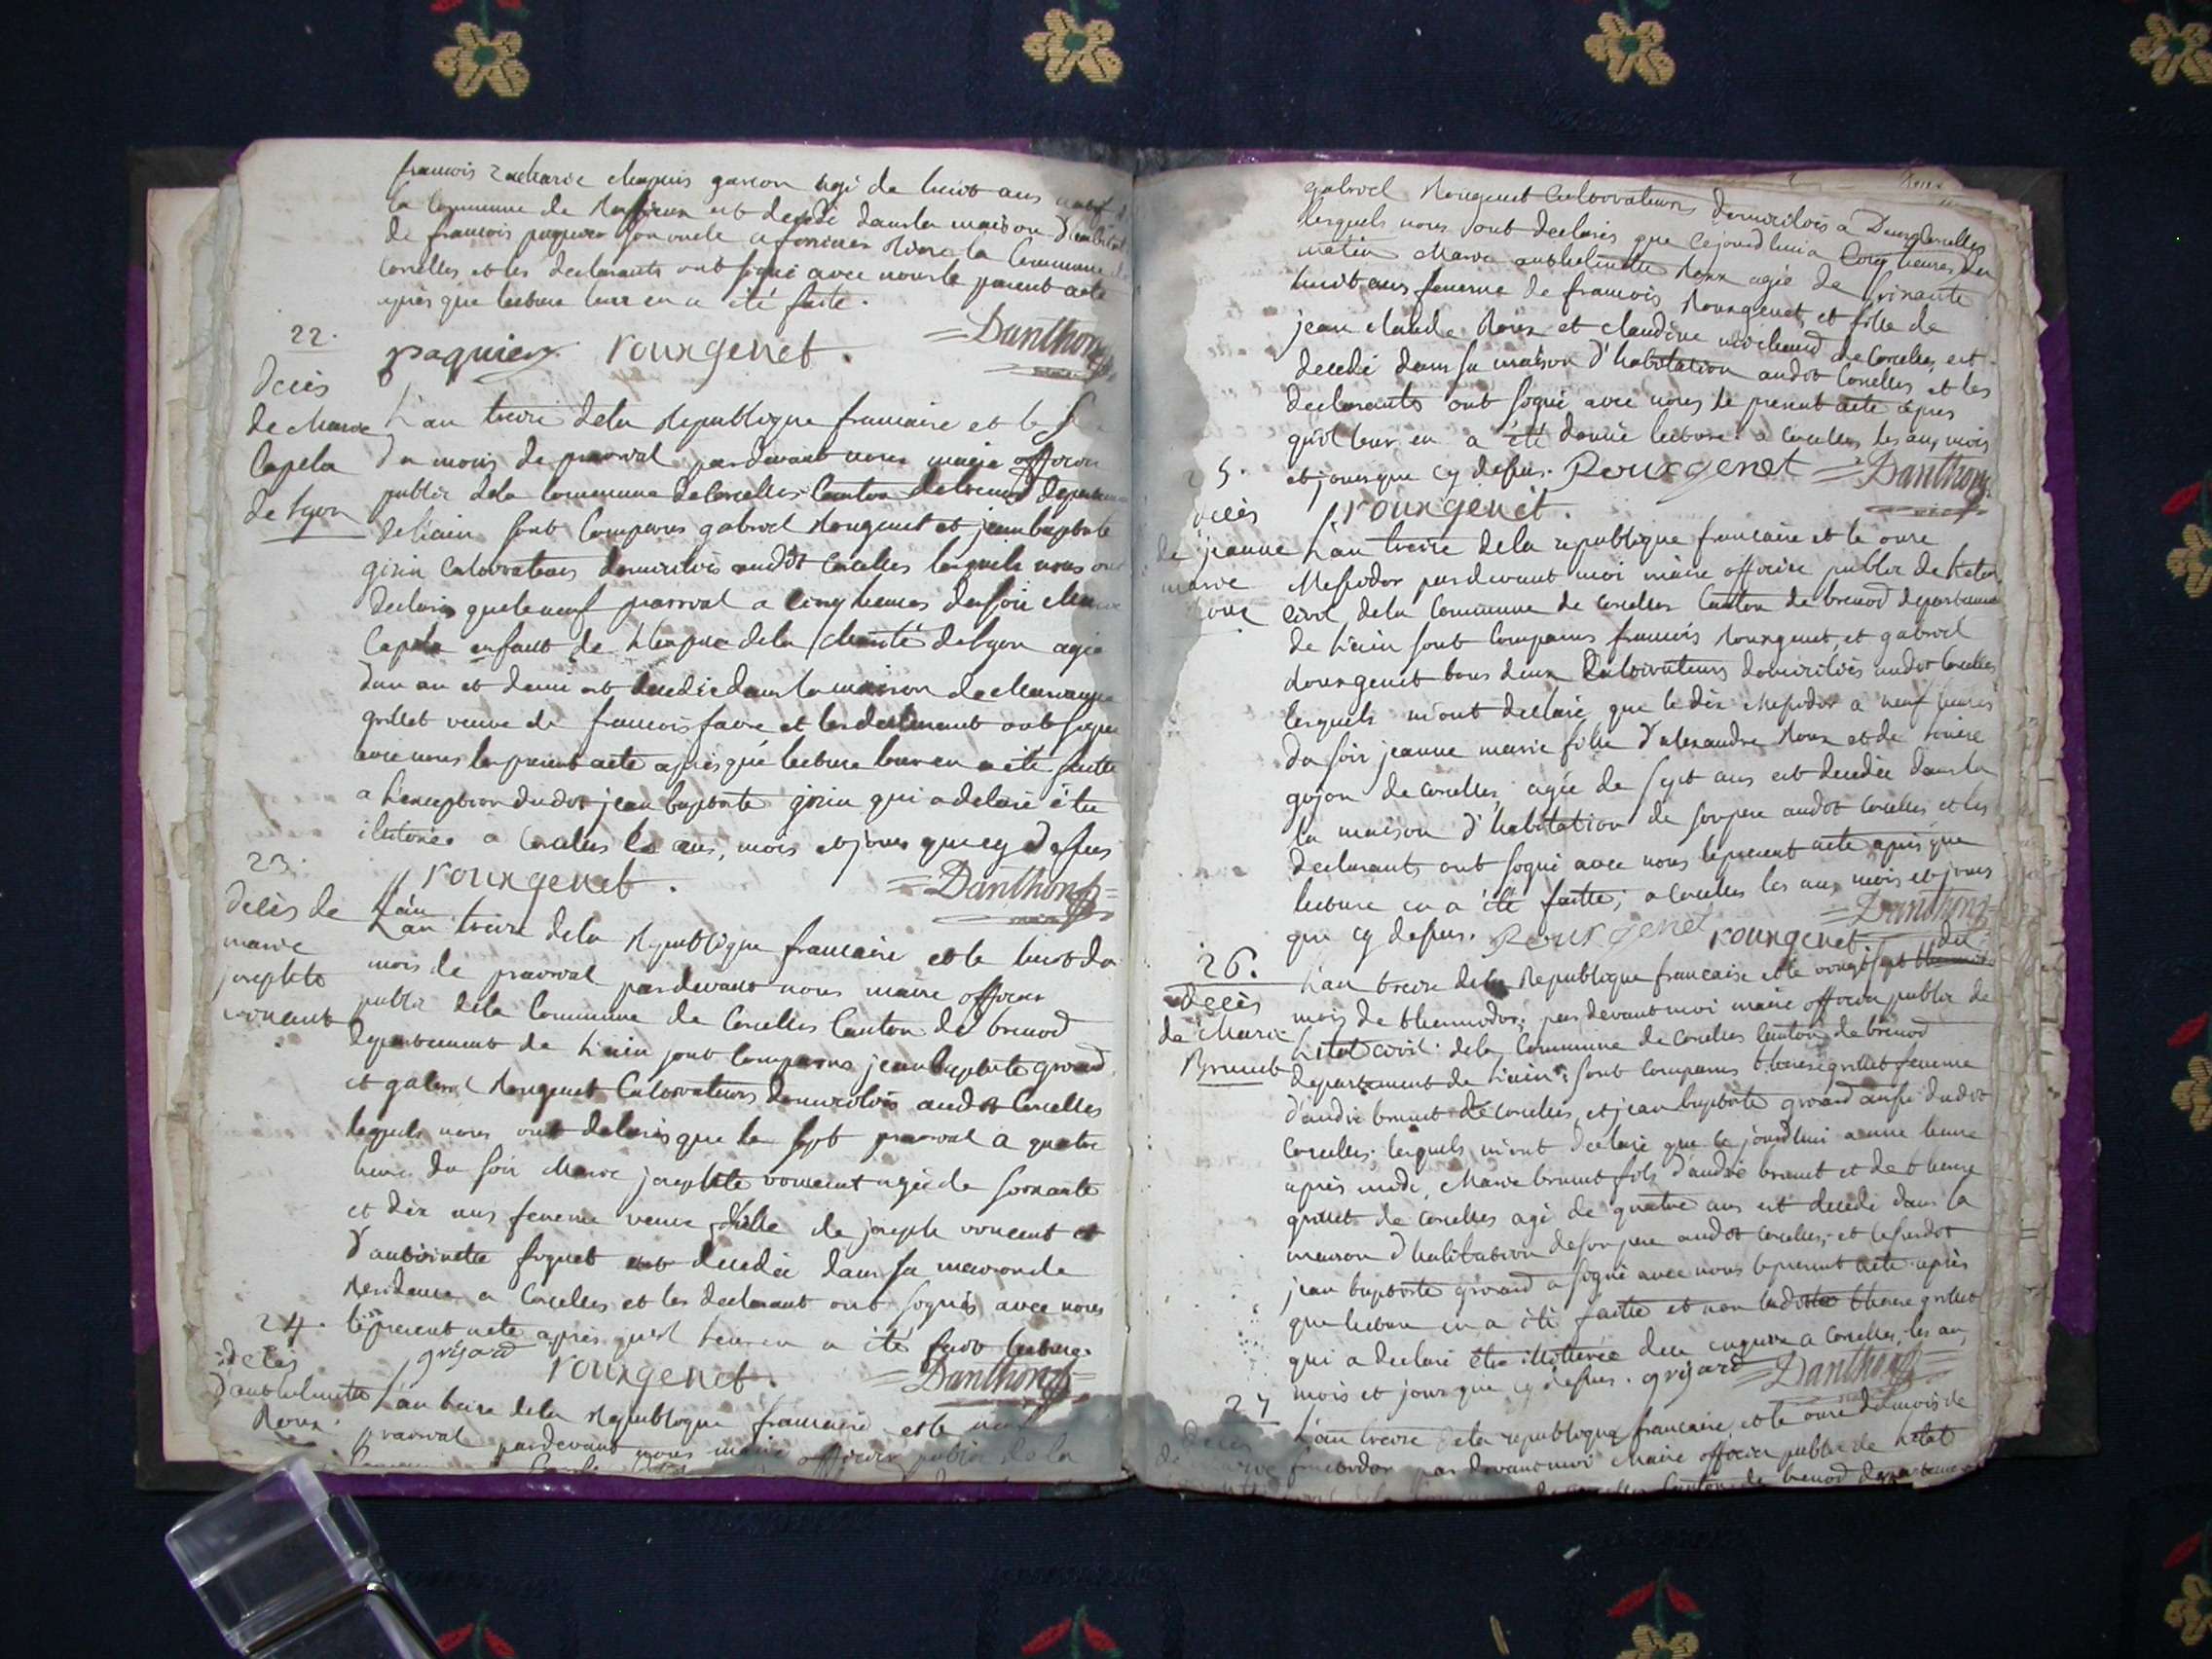 francois zacharie chapuis garcon agé de huit ans natif
la Commune de est decedé dans la maison D'habitat
de francois paquier son oncle a rière la Commune de
Corcelles et les declarants ont signé avec nous le present acte
après que lecture leur en a été faite.
paquier rougenet. Danthon
22.
décès
de Marie
Capela
de Lyon
L'an treize dela Republique francaise et le
du mois de prairial pardevant nous maire officier
public dela Commune de Corcelles Canton de brenod departeme
de l'ain sont Comparus gabriel Rougenet et jean baptiste
girin Cultivateurs domiciliés audit Corcelles lesquels nous ont
declarés que le neuf prairial a cinq heures du soir Marie
Capela enfant de l'hospice dela Charité de Lyon agée
d'un an et demi est decedée dans la maison de
grillet veuve de francois favre et les declarant ont signé
avec nous le present acte après que lecture leur en a été faitte
a l'exception dudit jean baptiste girin qui a delaré être
illiterée a Corcelles les ans, mois et jours que cy dessus
rougenet. Danthon
23.
décès de
marie
josephte
vincent
L'an
L'an treize dela Republique francaise et le huit du
mois de prairial pardevant nous maire officier
public dela Commune de Corcelles Canton de brenod
departement de l'ain sont Comparus jean baptiste girard
et gabriel Rougenet Cultivateurs domiciliés audit Corcelles
lesquels nous ont delarés que le sept prairial a quatre
heures du soir Marie josephte vincent agée de soixante
et dix ans femme veuve fille de joseph vincent et
d'antoinette est decedée dans sa maison de
Residence a Corcelles et les declarant ont signés avec nous
le present acte après qu'il leur en a été fait lecture
grijard rougenet. Danthon
24.
décès
d'anthelmette
Roux.
L'an treize dela Republique francaise et le neuf
prairial pardevant nous maire officier public de la
gabriel Rougenet Cultivateurs domiciliés a Corcelles
lesquels nous ont declarés que cejourd'hui a Cinq heures du
matin Marie anthelmette Roux agée de soixante
huit ans femme de francois Rougenet et fille de
jean claude Roux et claudine michaud de Corcelles, est
decedé dans sa maison d'habitation audit Corcelles et les
declarants ont signé avec nous le present acte après
qu'il leur en a été donné lecture a Corcelles les an, mois
et jours que cy dessus. Rougenet Danthon
rougenet.
25.
décès
de jeanne
marie
roux
L'an treize dela republique francaise et le onze
Messidor pardevant moi maire officier public de l'etat
civil dela Commune de Corcelles Canton de brenod departeme
de l'ain sont Comparus francois Rougenet, et gabriel
Rougenet tous deux Cultivateurs domiciliés audit Corcelles
lesquels m'ont declaré que le dix Messidor a neuf heures
du soir jeanne marie fille d'alexandre Roux et de
gojon de Corcelles, agée de sept ans est decedée dans la
la maison d'habitation de son pere audit Corcelles et les
declarants ont signé avec nous le present acte après que
lecture en a été faitte; a Corcelles les an, mois et jours
que cy dessus. Rougenet rougenet. Danthon
26.
décès
de Marie
Brunet
L'an treize dela Republique francaise et le vingt sept du
mois de thermidor; pardevant moi maire officier public de
l'etat civil dela Commune de Corcelles Canton de brenod
departement de l'ain; sont Comparus therese grillet femme
d'andré brunet de Corcelles, et jean baptiste girard aussi dudit
Corcelles. lesquels m'ont declaré que ce jourd'hui a une heure
après midi, Marie brunet fils d'andré brunet et de therese
grillet de Corcelles agé de quatre ans est decedé dans la
maison d'habitation de son pere audit Corcelles, et le susdit
jean baptiste girard a signé avec nous le present acte après
que lecture en a été faitte et non ladite therese grillet
qui a declaré être illitterée dece enquise a Corcelles, les an,
mois et jour que cy dessus. grijard Danthon
27
décès
de
L'an treize dela republique francaise, et le onze du mois de
fructidor par devant moi Maire officier public de l'etat
Canton de brenod departeme